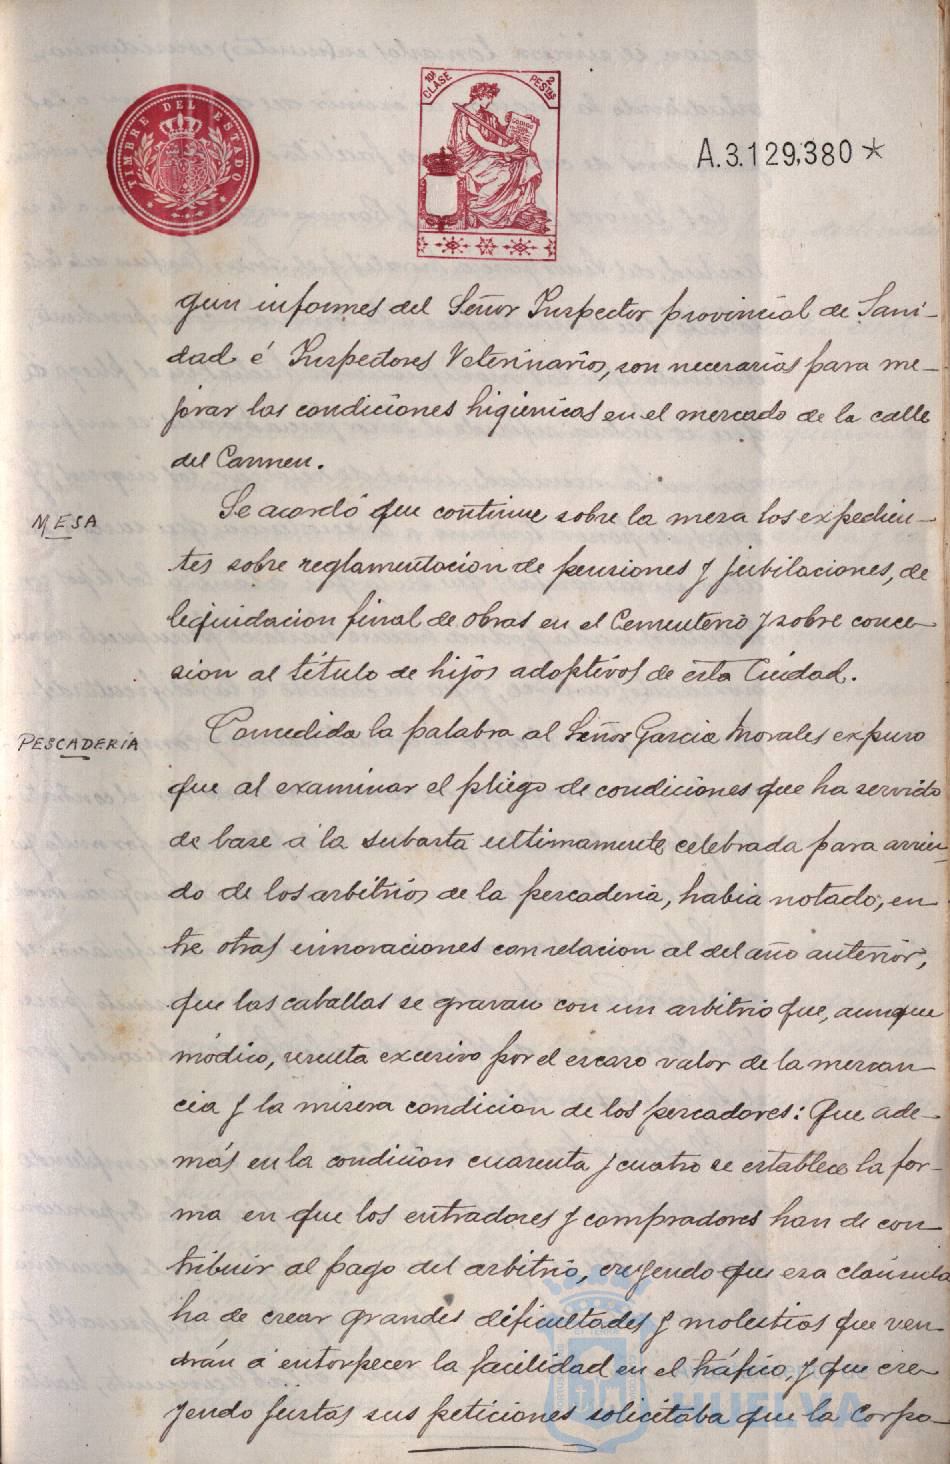 TIMBRE DEL ESTADO
10ª CLASE
2 PESTAS
A.3.129,380 *
gun informes del Señor Inspector provincial de Sani-
dad é Inspectores Veterinarios, son necesarias para me-
jorar las condiciones higiénicas en el mercado de la calle
del Carmen.
MESA
Se acordó que continue sobre la mesa los expedien-
tes sobre reglamentacion de pensiones y jubilaciones, de
liquidacion final de obras en el Cementerio y sobre conce-
sion al título de hijos adoptivos de esta Ciudad.
PESCADERÍA
Concedida la palabra al Señor Garcia Morales expuso
que al examinar el pliego de condiciones que ha servido
de base á la subasta ultimamente celebrada para arrien-
do de los arbitrios de la pescaderia, habia notado, en-
tre otras innovaciones con relacion al del año anterior,
que las caballas se gravan con un arbitrio que, aunque
módico, resulta excesivo por el escaso valor de la mercan-
cia y la misera condicion de los pescadores: Que ade-
más en la condicion cuarenta y cuatro se establece la for-
ma en que los entradores y compradores han de con-
tribuir al pago del arbitrio, creyendo que esa clausula
ha de crear grandes dificultades y molestias que ven-
drán á entorpecer la facilidad en el tráfico, y que cre-
yendo justas sus peticiones solicitaba que la Corpo-
HUELVA